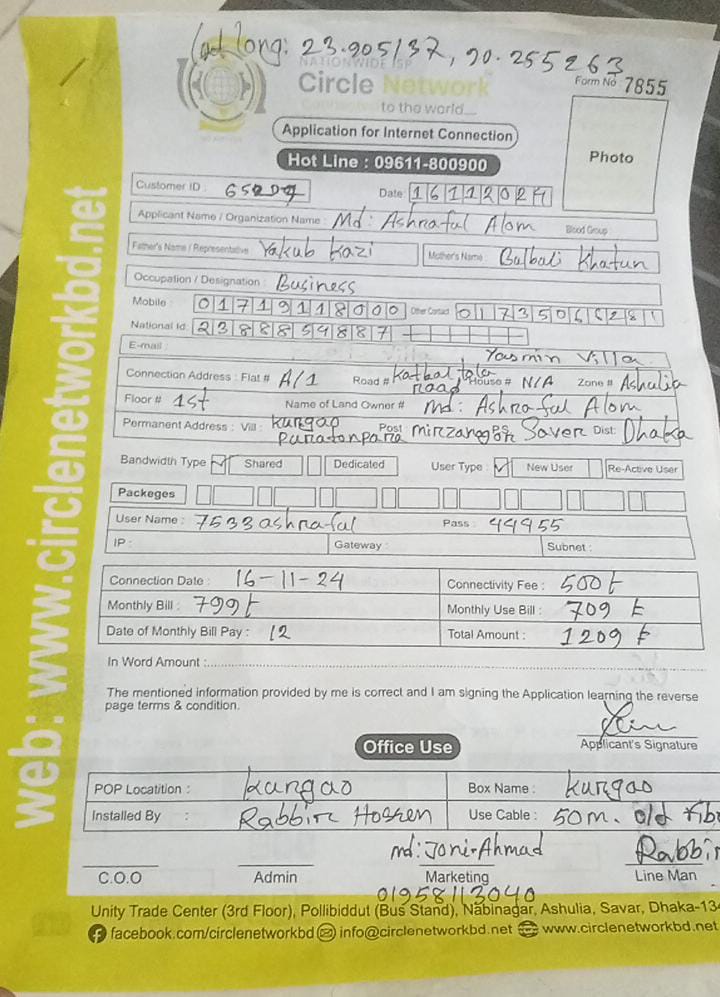 Lat long: 23.905137, 90.255263
NATIONWIDE ISP
Circle Network
to the world....
Form No 7855
Application for Internet Connection
Hot Line : 09611-800900
Photo
Customer ID :
Date: 16112024
Applicant Name / Organization Name : Md: Ashraful Alom Blood Group :
Father's Name / Representative Yakub Kazi Mother's Name : Bulbuli Khatun
Occupation / Designation : Business
Mobile : 01719118000 Other Contact 01735066281
National Id: 2388859887
E-mail :
Yasmin Villa.
Connection Address : Flat # A/1 Road # Katbaltola road, House # N/A Zone # Ashulia
Floor # 1st Name of Land Owner # Md: Ashraful Alom
Permanent Address : Vill : Kurgao Puratonpara Post Mirzanagor P.S Saver Dist: Dhaka
Bandwidth Type Shared Dedicated User Type : New User Re-Active User
Packeges
User Name : 7533ashraful Pass : 44955
IP : Gateway : Subnet :
Connection Date : 16-11-24 Connectivity Fee : 500 ৳
Monthly Bill : 799 ৳ Monthly Use Bill : 709 ৳
Date of Monthly Bill Pay : 12 Total Amount : 1209 ৳
In Word Amount :
The mentioned information provided by me is correct and I am signing the Application learning the reverse
page terms & condition.
Applicant's Signature
Office Use
POP Locatition : Kurgao Box Name : Kurgao
Installed By : Rabbir Hossen Use Cable : 50m. old fib
md: Joni Ahmad Rabbi
C.O.O Admin Marketing Line Man
01958113040
Unity Trade Center (3rd Floor), Pollibiddut (Bus Stand), Nabinagar, Ashulia, Savar, Dhaka-134
facebook.com/circlenetworkbd info@circlenetworkbd.net www.circlenetworkbd.net
web: www.circlenetworkbd.net